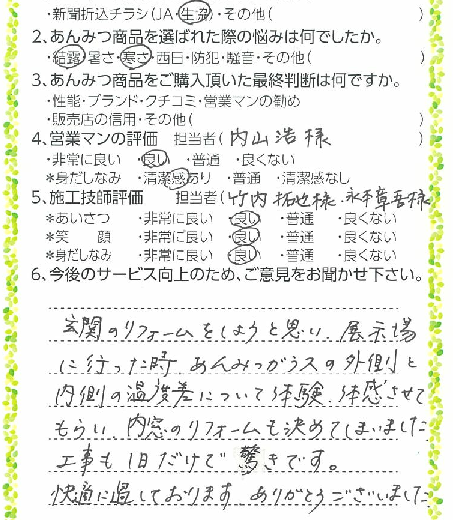 ・新聞折込チラシ(JA・生協)・その他( )
2、あんみつ商品を選ばれた際の悩みは何でしたか。
・結露・暑さ・寒さ・西日・防犯・騒音・その他( )
3、あんみつ商品をご購入頂いた最終判断は何ですか。
・性能・ブランド・クチコミ・営業マンの勧め
・販売店の信用・その他( )
4、営業マンの評価 担当者(内山浩様)
・非常に良い ・良い ・普通 ・良くない
*身だしなみ ・清潔感あり ・普通 ・清潔感なし
5、施工技師評価 担当者(竹内拓也様、永本章吾様
*あいさつ ・非常に良い ・良い ・普通 ・良くない
*笑 顔 ・非常に良い ・良い ・普通 ・良くない
*身だしなみ ・非常に良い ・良い ・普通 ・良くない
6、今後のサービス向上のため、ご意見をお聞かせ下さい。
玄関のリフォームをしようと思い、展示場
に行った時、あんみつガラスの外側と
内側の温度差について体験、体感させて
もらい、内窓のリフォームも決めてしまいました
工事も1日だけで驚きです。
快適に過しております。ありがとうございました